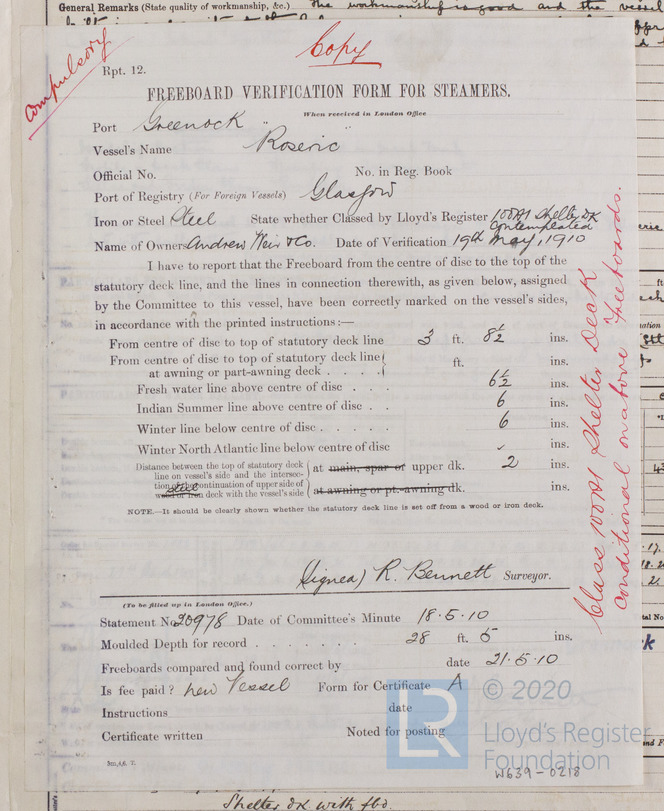 General Remarks (State quality of workmanship, &c.) The workmanship is good and the vessel
Copy
compulsory
Rpt. 12.
FREEBOARD VERIFICATION FORM FOR STEAMERS.
When received in London Office
Port Greenock
Vessel's Name "Roseric"
Official No. No. in Reg. Book
Port of Registry (For Foreign Vessels) Glasgow
Iron or Steel Steel State whether Classed by Lloyd's Register 100A1 Shelter DK
contemplated
Name of Owners Andrew Weir & Co. Date of Verification 19th May, 1910
I have to report that the Freeboard from the centre of disc to the top of the
statutory deck line, and the lines in connection therewith, as given below, assigned
by the Committee to this vessel, have been correctly marked on the vessel's sides,
in accordance with the printed instructions:—
From centre of disc to top of statutory deck line 3 ft. 8½ ins.
From centre of disc to top of statutory deck line
at awning or part-awning deck . . . . ft. ins.
Fresh water line above centre of disc . . . 6½ ins.
Indian Summer line above centre of disc . . 6 ins.
Winter line below centre of disc . . . . . 6 ins.
Winter North Atlantic line below centre of disc ✓ ins.
Distance between the top of statutory deck
line on vessel's side and the intersec-
tion of the continuation of upper side of
steel
wood or iron deck with the vessel's side
at main, spar or upper dk. 2 ins.
at awning or pt.-awning dk. ins.
NOTE.—It should be clearly shown whether the statutory deck line is set off from a wood or iron deck.
(Signed) R. Bennett Surveyor.
(To be filled up in London Office.)
Statement No. 20978 Date of Committee's Minute 18.5.10
Moulded Depth for record . . . . . . . 28 ft. 5 ins.
Freeboards compared and found correct by date 21.5.10
Is fee paid? new Vessel Form for Certificate A
Instructions date
Certificate written Noted for posting
3m,4,6. T.
Class 100A1 Shelter Deck
conditional on above Freeboards.
LR
© 2020
Lloyd's Register
Foundation
W639-0218
Shelter DK with fbd.